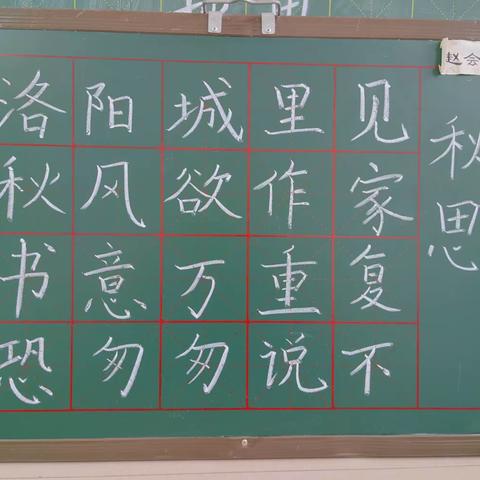 秋思
洛阳城里见
秋风欲作家
书意万重复
恐匆匆说不
赵会